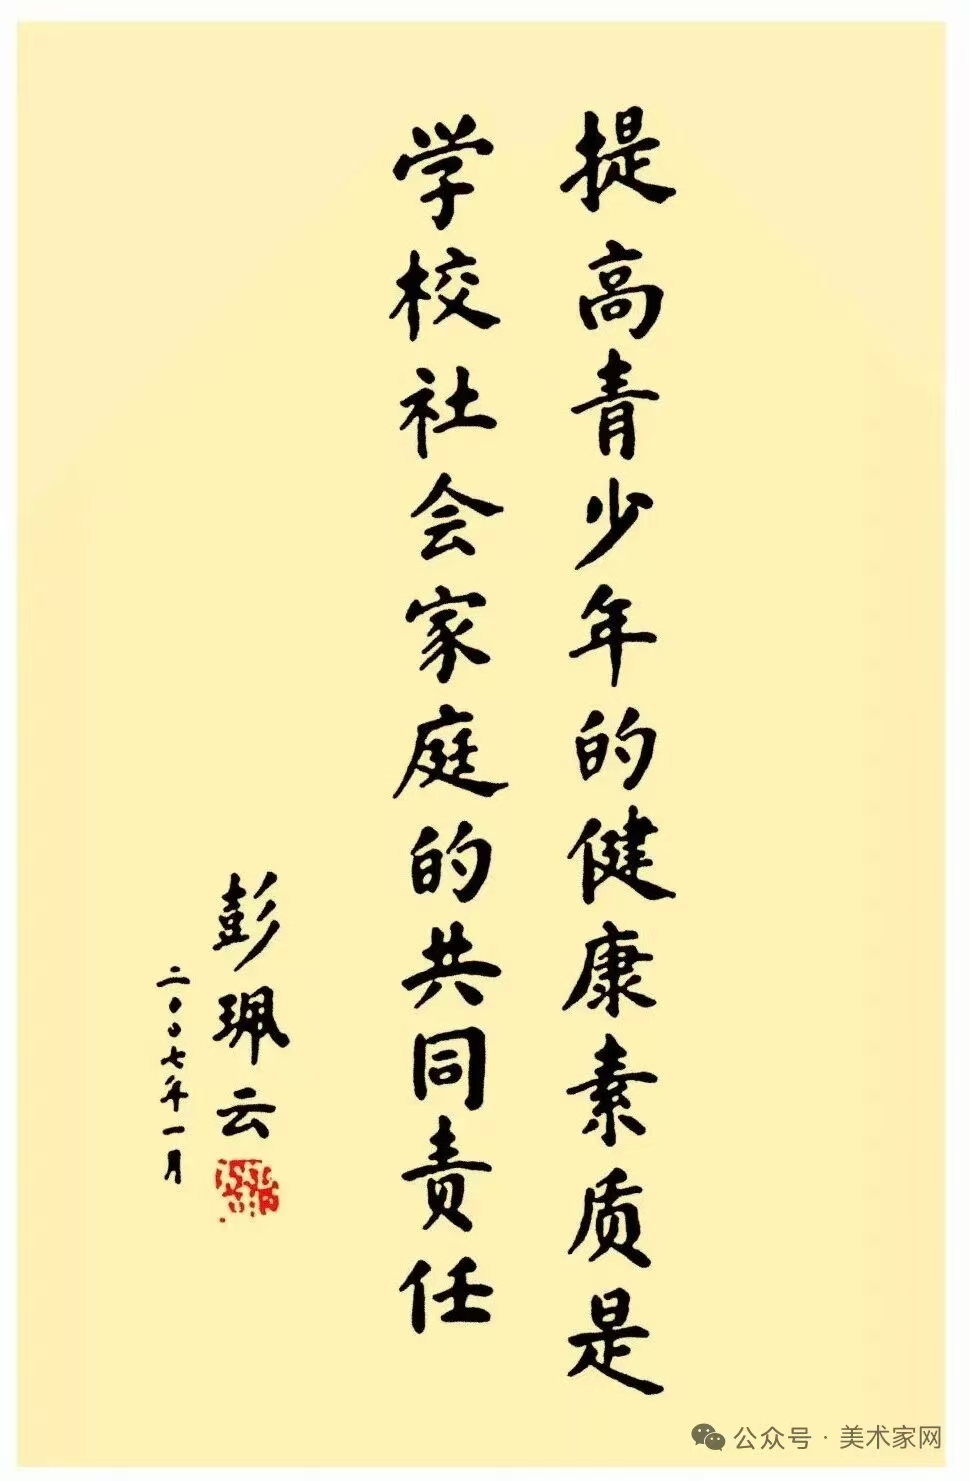 提高青少年的健康素质是
学校社会家庭的共同责任
彭珮云
二〇〇七年一月
公众号·美术家网